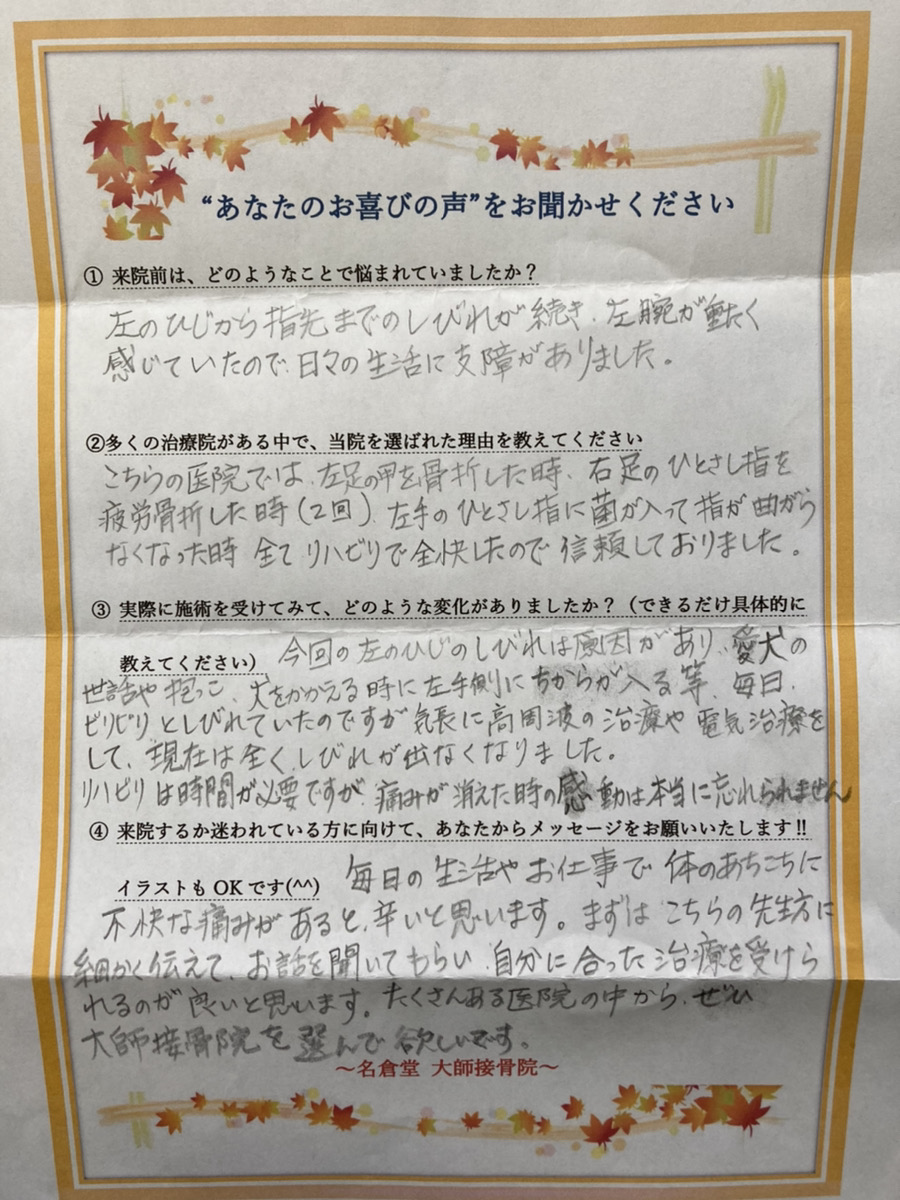 “あなたのお喜びの声”をお聞かせください
① 来院前は、どのようなことで悩まれていましたか？
左のひじから指先までのしびれが続き、左腕が重たく
感じていたので、日々の生活に支障がありました。
②多くの治療院がある中で、当院を選ばれた理由を教えてください
こちらの医院では、左足の甲を骨折した時、右足のひとさし指を
疲労骨折した時(2回)、左手のひとさし指に菌が入って指が曲がら
なくなった時 全てリハビリで全快したので信頼しておりました。
③ 実際に施術を受けてみて、どのような変化がありましたか？（できるだけ具体的に
教えてください） 今回の左のひじのしびれは原因があり、愛犬の
世話や抱っこ、犬をかかえる時に左手側にちからが入る等、毎日、
ビリビリとしびれていたのですが気長に高周波の治療や電気治療を
して、現在は全くしびれが出なくなりました。
リハビリは時間が必要ですが、痛みが消えた時の感動は本当に忘れられません
④ 来院するか迷われている方に向けて、あなたからメッセージをお願いいたします!!
イラストもOKです(^^) 毎日の生活やお仕事で体のあちこちに
不快な痛みがあると、辛いと思います。まずはこちらの先生方に
細かく伝えて、お話を聞いてもらい、自分に合った治療を受けら
れるのが良いと思います。たくさんある医院の中から、ぜひ
大師接骨院を選んで欲しいです。
～名倉堂 大師接骨院～